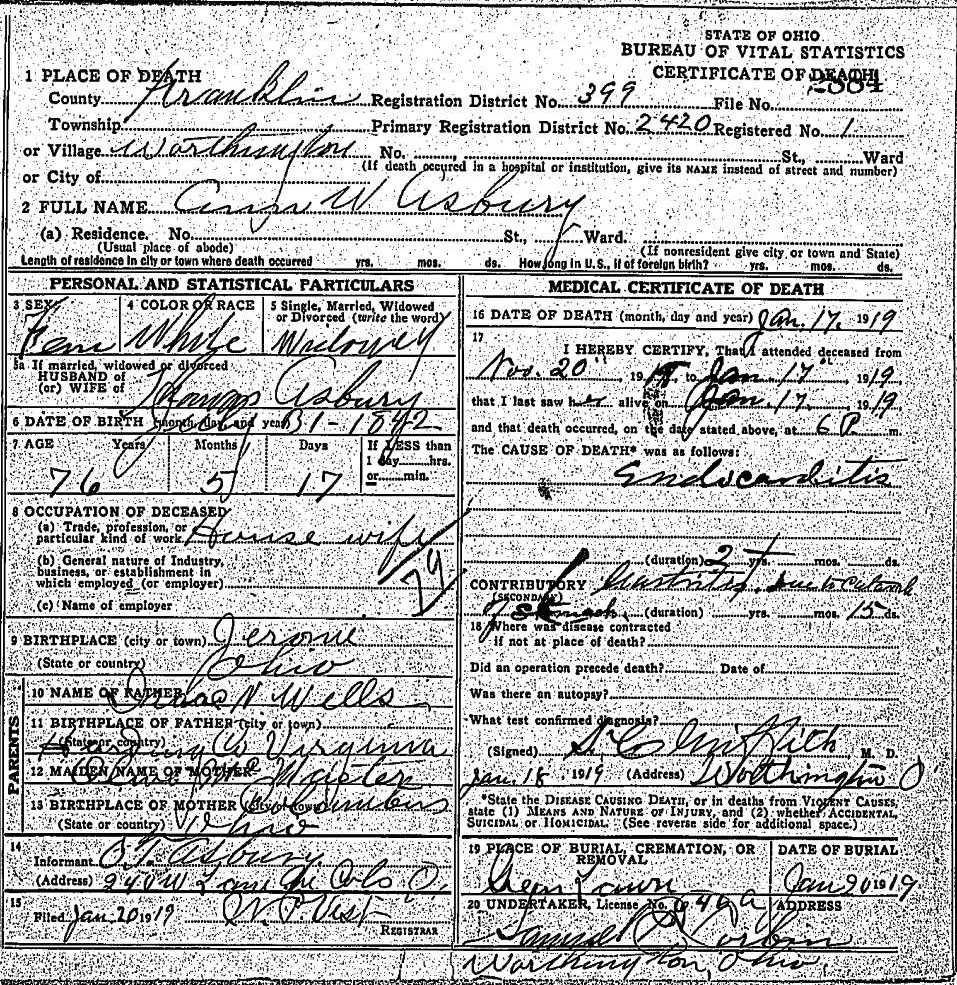 STATE OF OHIO
BUREAU OF VITAL STATISTICS
CERTIFICATE OF DEATH
1 PLACE OF DEATH
County Franklin Registration District No. 399 File No.
Township Primary Registration District No. 2420 Registered No. 1
or Village Worthington No. , St., Ward
(If death occured in a hospital or institution, give its NAME instead of street and number)
or City of
2 FULL NAME W Asbury
(a) Residence. No. St., Ward.
(Usual place of abode) (If nonresident give city or town and State)
Length of residence in city or town where death occurred yrs. mos. ds. How long in U.S., if of foreign birth? yrs. mos. ds.
PERSONAL AND STATISTICAL PARTICULARS
3 SEX 4 COLOR OR RACE 5 Single, Married, Widowed
or Divorced (write the word)
Fem White Widowed
5a If married, widowed or divorced
HUSBAND of
(or) WIFE of Asbury
6 DATE OF BIRTH (month, day and year) 31-1842
7 AGE Years Months Days If LESS than
1 day hrs.
or min.
76 5 17
8 OCCUPATION OF DECEASED
(a) Trade, profession, or
particular kind of work House wife
(b) General nature of Industry,
business, or establishment in
which employed (or employer)
(c) Name of employer
79
9 BIRTHPLACE (city or town) Jerome
(State or country) Ohio
PARENTS
10 NAME OF FATHER N Wells
11 BIRTHPLACE OF FATHER (city or town)
(State or country) Co Virginia
12 MAIDEN NAME OF MOTHER McMaster
13 BIRTHPLACE OF MOTHER (City or town) Columbus
(State or country) Ohio
14
Informant Asbury
(Address) 240 W Lane Ave Cols O.
15
Filed Jan 20 1919 Vest
REGISTRAR
MEDICAL CERTIFICATE OF DEATH
16 DATE OF DEATH (month, day and year) Jan. 17, 1919
17
I HEREBY CERTIFY, That I attended deceased from
Nov. 20, 1918, to Jan 17, 1919
that I last saw her alive on Jan. 17, 1919
and that death occurred, on the date stated above, at 6 P m.
The CAUSE OF DEATH* was as follows:
Endocarditis
(duration) 2 yrs. mos. ds.
CONTRIBUTORY Gastritis, Due to
(SECONDARY)
of Stomach (duration) yrs. mos. 15 ds.
18 Where was disease contracted
if not at place of death?
Did an operation precede death? Date of
Was there an autopsy?
What test confirmed diagnosis?
(Signed) Griffith M. D.
Jan. 18, 1919 (Address) Worthington O
*State the DISEASE CAUSING DEATH, or in deaths from VIOLENT CAUSES,
state (1) MEANS AND NATURE OF INJURY, and (2) whether ACCIDENTAL,
SUICIDAL or HOMICIDAL. (See reverse side for additional space.)
19 PLACE OF BURIAL, CREMATION, OR
REMOVAL DATE OF BURIAL
Green Lawn Jan 20 1919
20 UNDERTAKER, License No. ADDRESS
Samuel Corbin
Worthington, Ohio